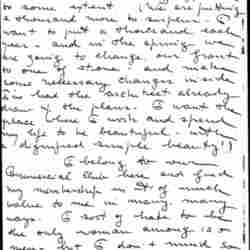 to some extent. (We are putting
a thousand more to surplus. I
want to put a thousand each
year - and in the spring, we
are going to change our front
to one of stone - and make
some necessary changes inside
I've had the architect already
draw the plans. I want the
place where I wish and spend
my life to be beautiful - with
a dignified simple beauty!)
I belong to our
Commercial Club here and find
my membership in it of much
value to me in many, many
ways. I sort of hate to be
the only woman among so
men, but I don't mind so